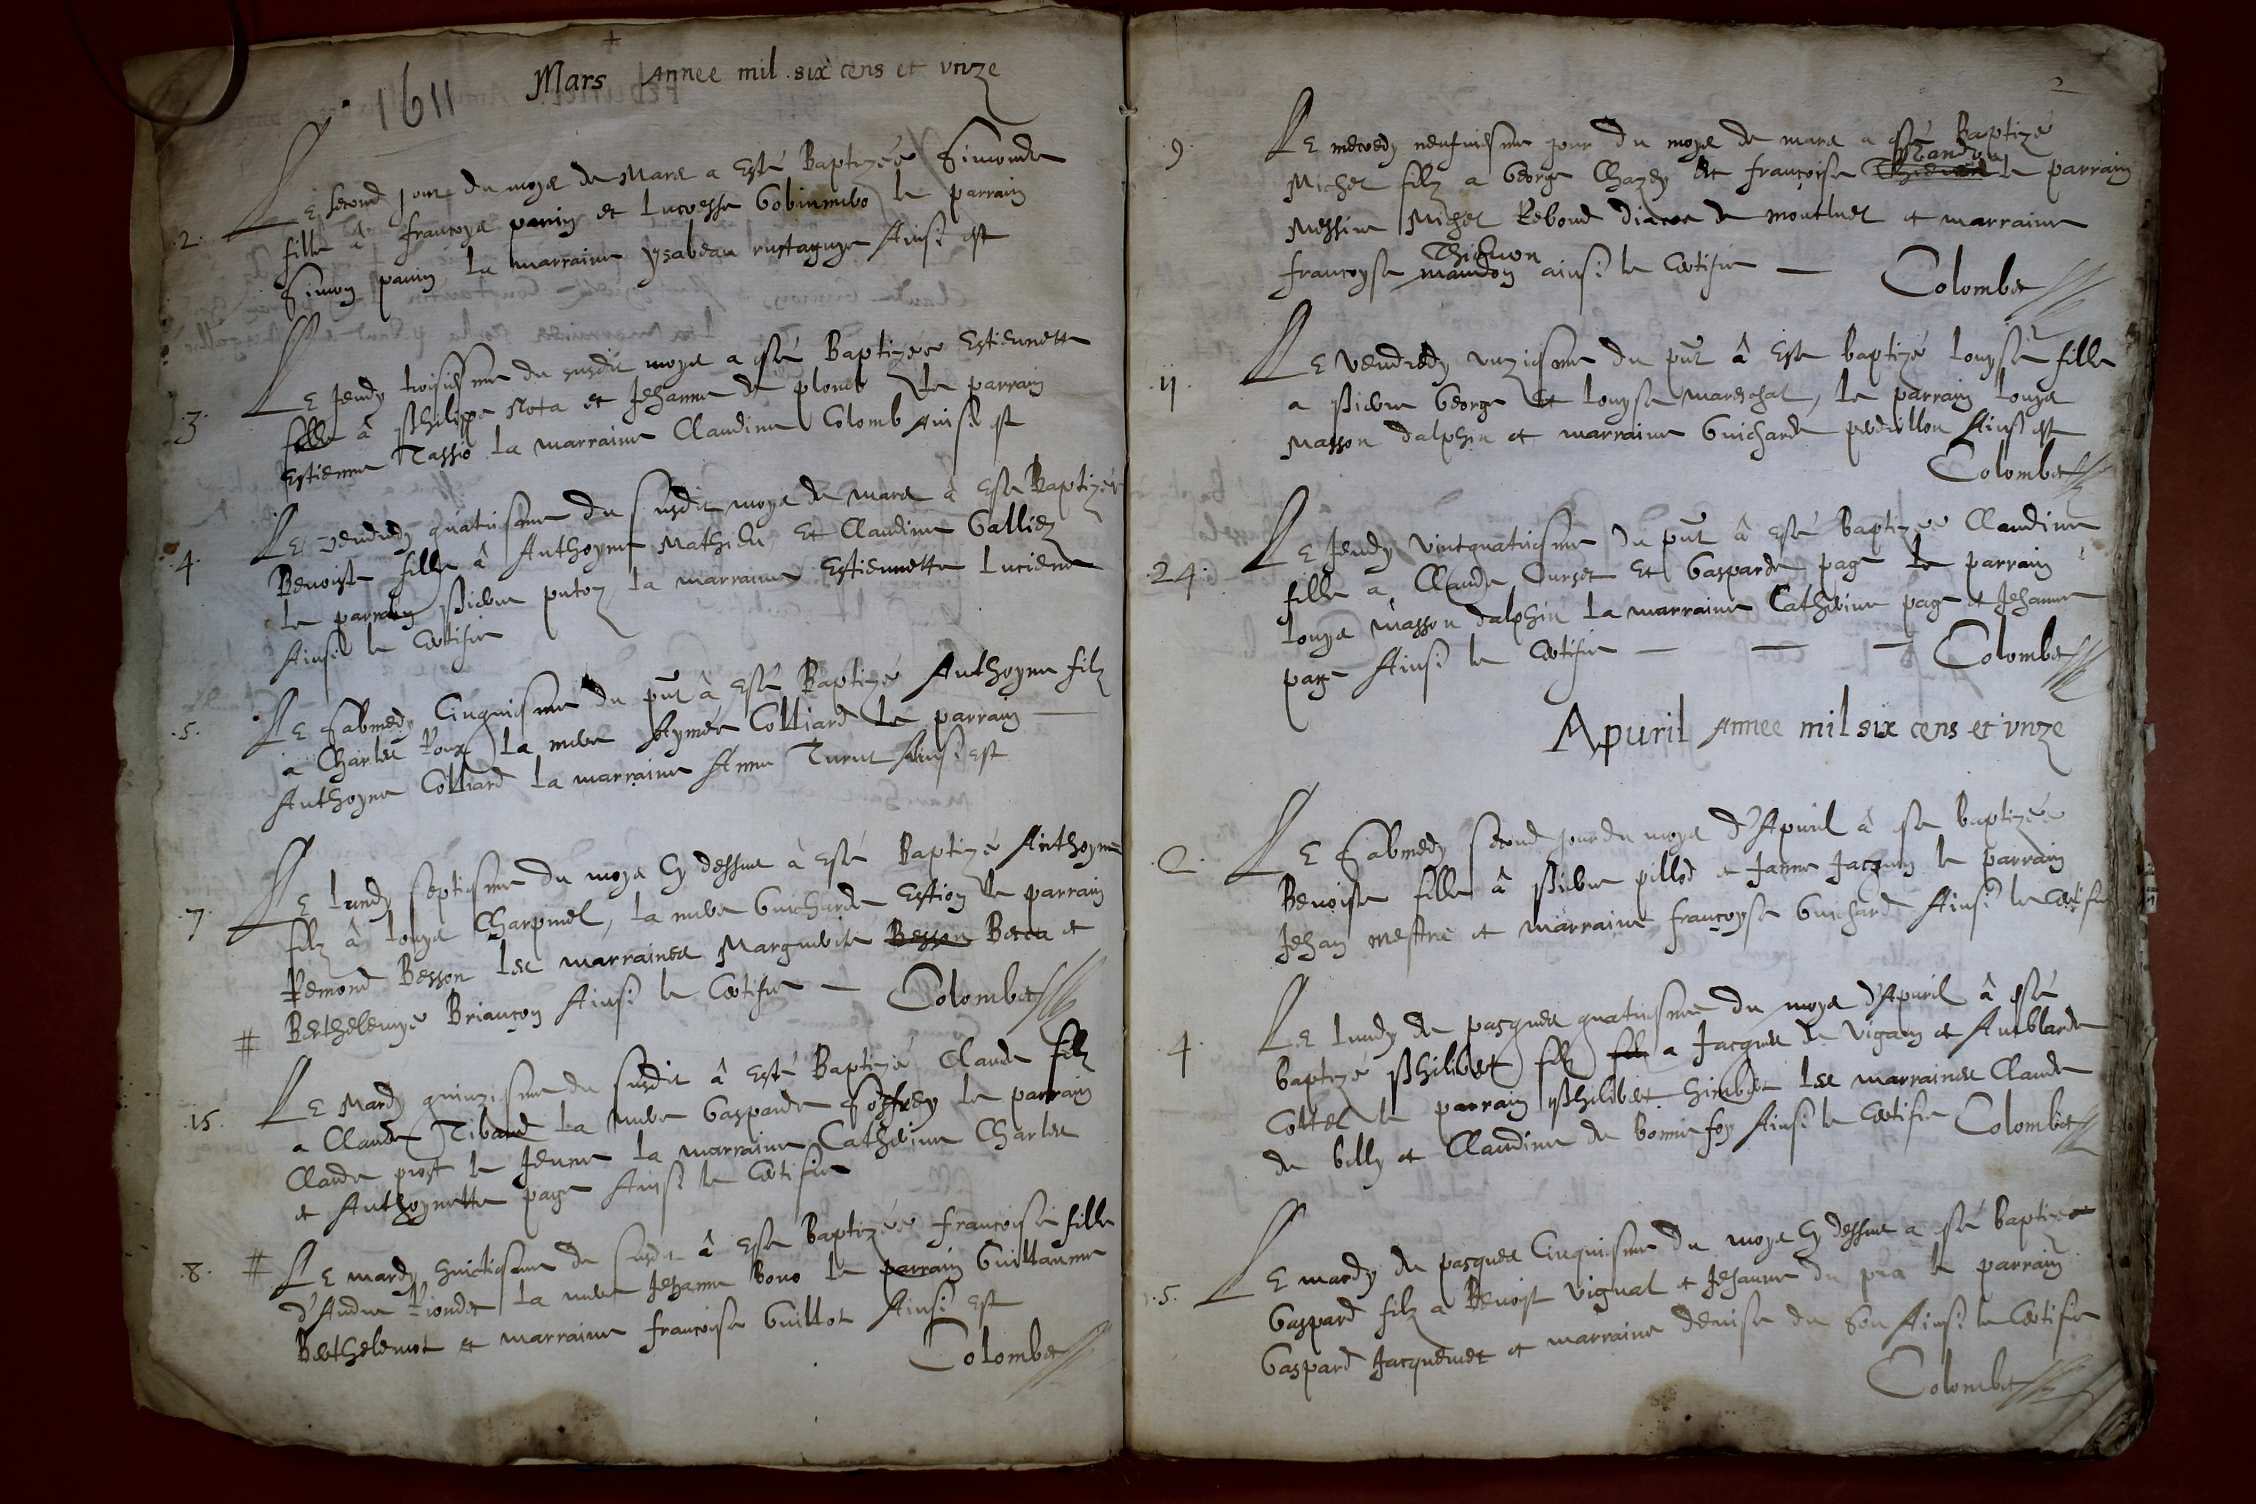 1611 Mars Annee mil six cens et unze
.2. Le second jour du moys de Mars a esté Baptizée Simonde
fille â françoys panin et lucresse le parrain
Simon panin la marraine ysabeau Ainsi est
.3. Le Jeudy troisiesme du susdit moys a esté Baptizée Estiennette
fille â Philippe Nota et Jehanne de le parrain
Estienne Tassio la marraine Claudine Colomb Ainsi est
.4. Le vendredy quatriesme du susdit moys de mars â este Baptizée
Benoiste fille â Anthoyne Mathieu Et Claudine Galliez
le parrain Pierre la marraine Estiennette
Ainsi le Certifie
.5. Le sabmedy Cinquiesme du put â esté Baptizé Anthoyne filz
a Charles Roux la mere Aymée Colliard le parrain —
Anthoyne Colliard la marraine Anne Ainsi est
.7. Le lundy septiesme du moys Cy dessus â esté Baptizé Anthoyne
filz â louys Charpinel, la mere Guicharde Estion le parrain
Remond Besson les marraines Marguerite Besson et
# Berthelemye Briançon Ainsi le Certifie — Colombet
.15. Le Mardy quinziesme du susdit â esté Baptizé Claude filz
a Claude Tibaud la mere Gasparde Soffrey le parrain
Claude prost le Jeune la marraine Catherine Charles
et Anthoynette page Ainsi le Certifie
.8. # Le mardy huictiesme du susdit â este baptizée françoise fille
d'Andre Riondet la mere Jehanne bono le parrain Guillaume
Berthelemot et marraine françoise Guillot Ainsi est
Colombet
2
.9. Le mecredy neufviesme jour du moys de mars a esté Baptizé
Michel filz a George Chazey et françoise le parrain
Messire Michel Rebond diacre de montluel et marraine
françoyse mandon Thiévon ainsi le Certifie — Colombet
11. Le vendredy unziesme du put â este baptizé louyse fille
a Pierre George et louyse mareschal, le parrain louys
Masson dalphin et marraine Guicharde perdrillon Ainsi est
Colombet
.24. Le Jeudy vintquatriesme du put â esté baptizée Claudine
fille a Claude Curset et Gasparde page le parrain
louys masson dalphin la marraine Catherine page et Jehanne
page Ainsi le Certifie — — — Colombet
Apuril Annee mil six cens et unze
.2. Le sabmedy second jour du moys d'Apuril â este baptizée
Benoiste fille â Pierre pillod et Janne Jaquin le parrain
Jehan mestre et marraine françoyse Guichard Ainsi le Certifie
.4. Le lundy de pasques quatriesme du moys d'Apuril â esté
baptizé Philibert filz filz a Jacques de vigain et Amblarde
Cottel le parrain Philibert himbert les marraines Claude
de billy et Claudine de bonnefoy Ainsi le Certifie Colombet
.5. Le mardy de pasques Cinquiesme du moys Cy dessus a esté baptizé
Gaspard filz a Benoist vignat et Jehanne du pra le parrain
Gaspard Jacquemet et marraine denise du Ainsi le Certifie
Colombet